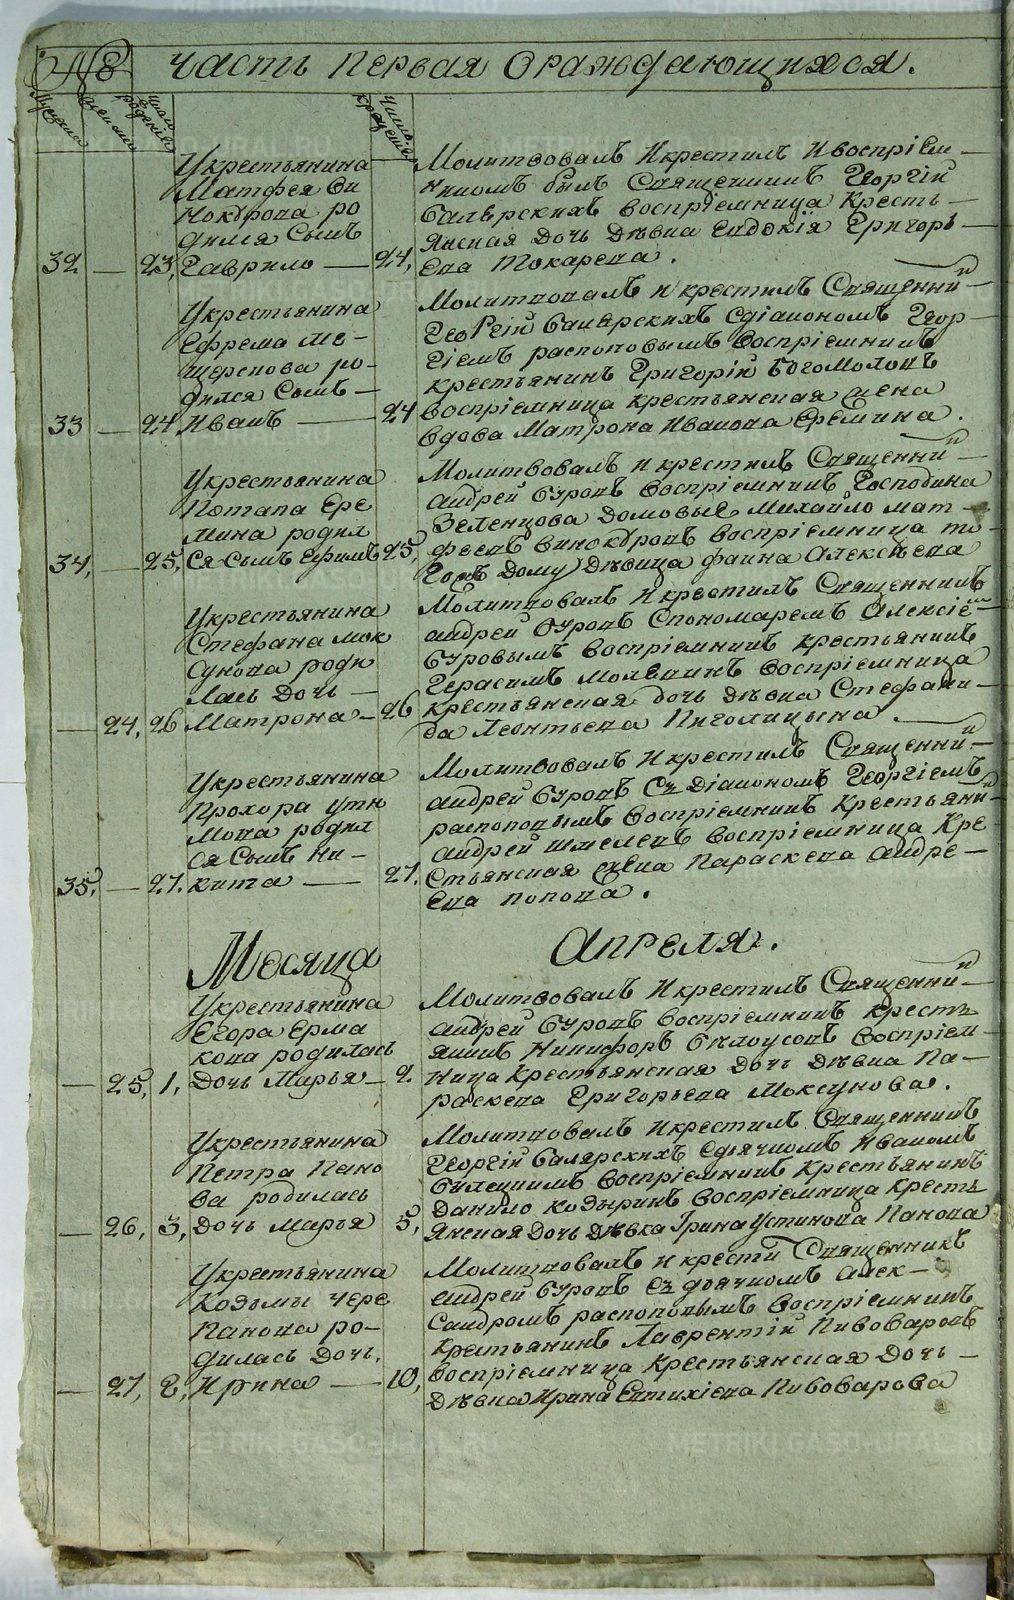 METRIKI.GASO-URAL.RU
Часть Первая Ораждающихся.
Мужеска
Женска
Число рождения
Число крещения
Укрестьянина
Матфея Ви
нокурова ро
дился Сынъ
32 — 23, Гаврило — 24,
Молитвовалъ Икрестилъ Ивоспріем—
никомъ былъ Священникъ Георгій
воспріемница Кресть—
янская Дочь Дѣвка Евдокія Григорь—
ева Токарева.
Укрестьянина
Ефрема Ме—
щерекова ро—
дился Сынъ—
33 — 24 Иванъ — 24
Молитвовалъ и крестилъ Священни—
Георгій Сдіакономъ Геор—
гіемъ распоповымъ Воспріемникъ
крестьянинъ Григорій Богомоловъ
воспріемница крестьянская жена
вдова Матрона Иванова Еремина.
Укрестьянина
Потапа Ере
мина родил
34, — 25, ся Сынъ Ефимъ 25,
Молитвовалъ и крестилъ Священни—
андрей Буровъ Воспріемникъ Господина
Зеленцова Домовые Михайло мат—
феевъ Винокуровъ воспріемница то—
гожъ Дому Дѣвица фаина Алексѣева
Укрестьянина
Стефана Мок
родила
лась Дочь —
— 24, 26 Матрона — 26
Молитвовалъ Икрестилъ Священникъ
андрей Буровъ Спономаремъ Алексіе—
Буровымъ воспріемникъ крестьянинъ
Герасимъ воспріемница
крестьянская дочь Дѣвка Стефани—
да Леонтьева Пиголицына.
Укрестьянина
Прохора Утю
мова родил
ся Сынъ Ни—
35, — 27. кита — 27.
Молитвовалъ Икрестилъ Священни—
андрей Буровъ Съ Діакономъ Георгіемъ
распоповымъ Воспріемникъ Крестьяни—
андрей Шмелевъ Воспріемница Кре—
стьянская жена Параскева андре—
ева Попова.
Месяца Апреля.
Укрестьянина
Егора Ерма
кова родилась
— 25, 1, Дочь Марья — 2.
Молитвовалъ Икрестилъ Священни—
андрей Буровъ воспріемникъ кресть
янинъ Никифоръ Бѣлоусовъ Воспріем—
ница Крестьянская Дочь Дѣвка Па—
раскева Григорьева Моксунова.
Укрестьянина
Петра Пано
ва родилась
— 26, 3, Дочь Марья 5,
Молитвовалъ Икрестилъ Священникъ
Георгій Сдьячкомъ Иваномъ
Воспріемникъ Крестьянинъ
Данило Козыринъ Воспріемница Кресть
янская Дочь Дѣвка Ірина Устинова Панова
Укрестьянина
Козьмы Чере
панова ро—
дилась Дочь.
— 27, 8, Ирина — 10,
Молитвовалъ и крести Священникъ
андрей Буровъ Съ дьячкомъ алек—
сандромъ распоповымъ Воспріемникъ
Крестьянинъ Лаврентій Пивоваровъ
воспріемница Крестьянская Дочь—
Дѣвка Ирина Евтихіева Пивоварова
METRIKI.GASO-URAL.RU